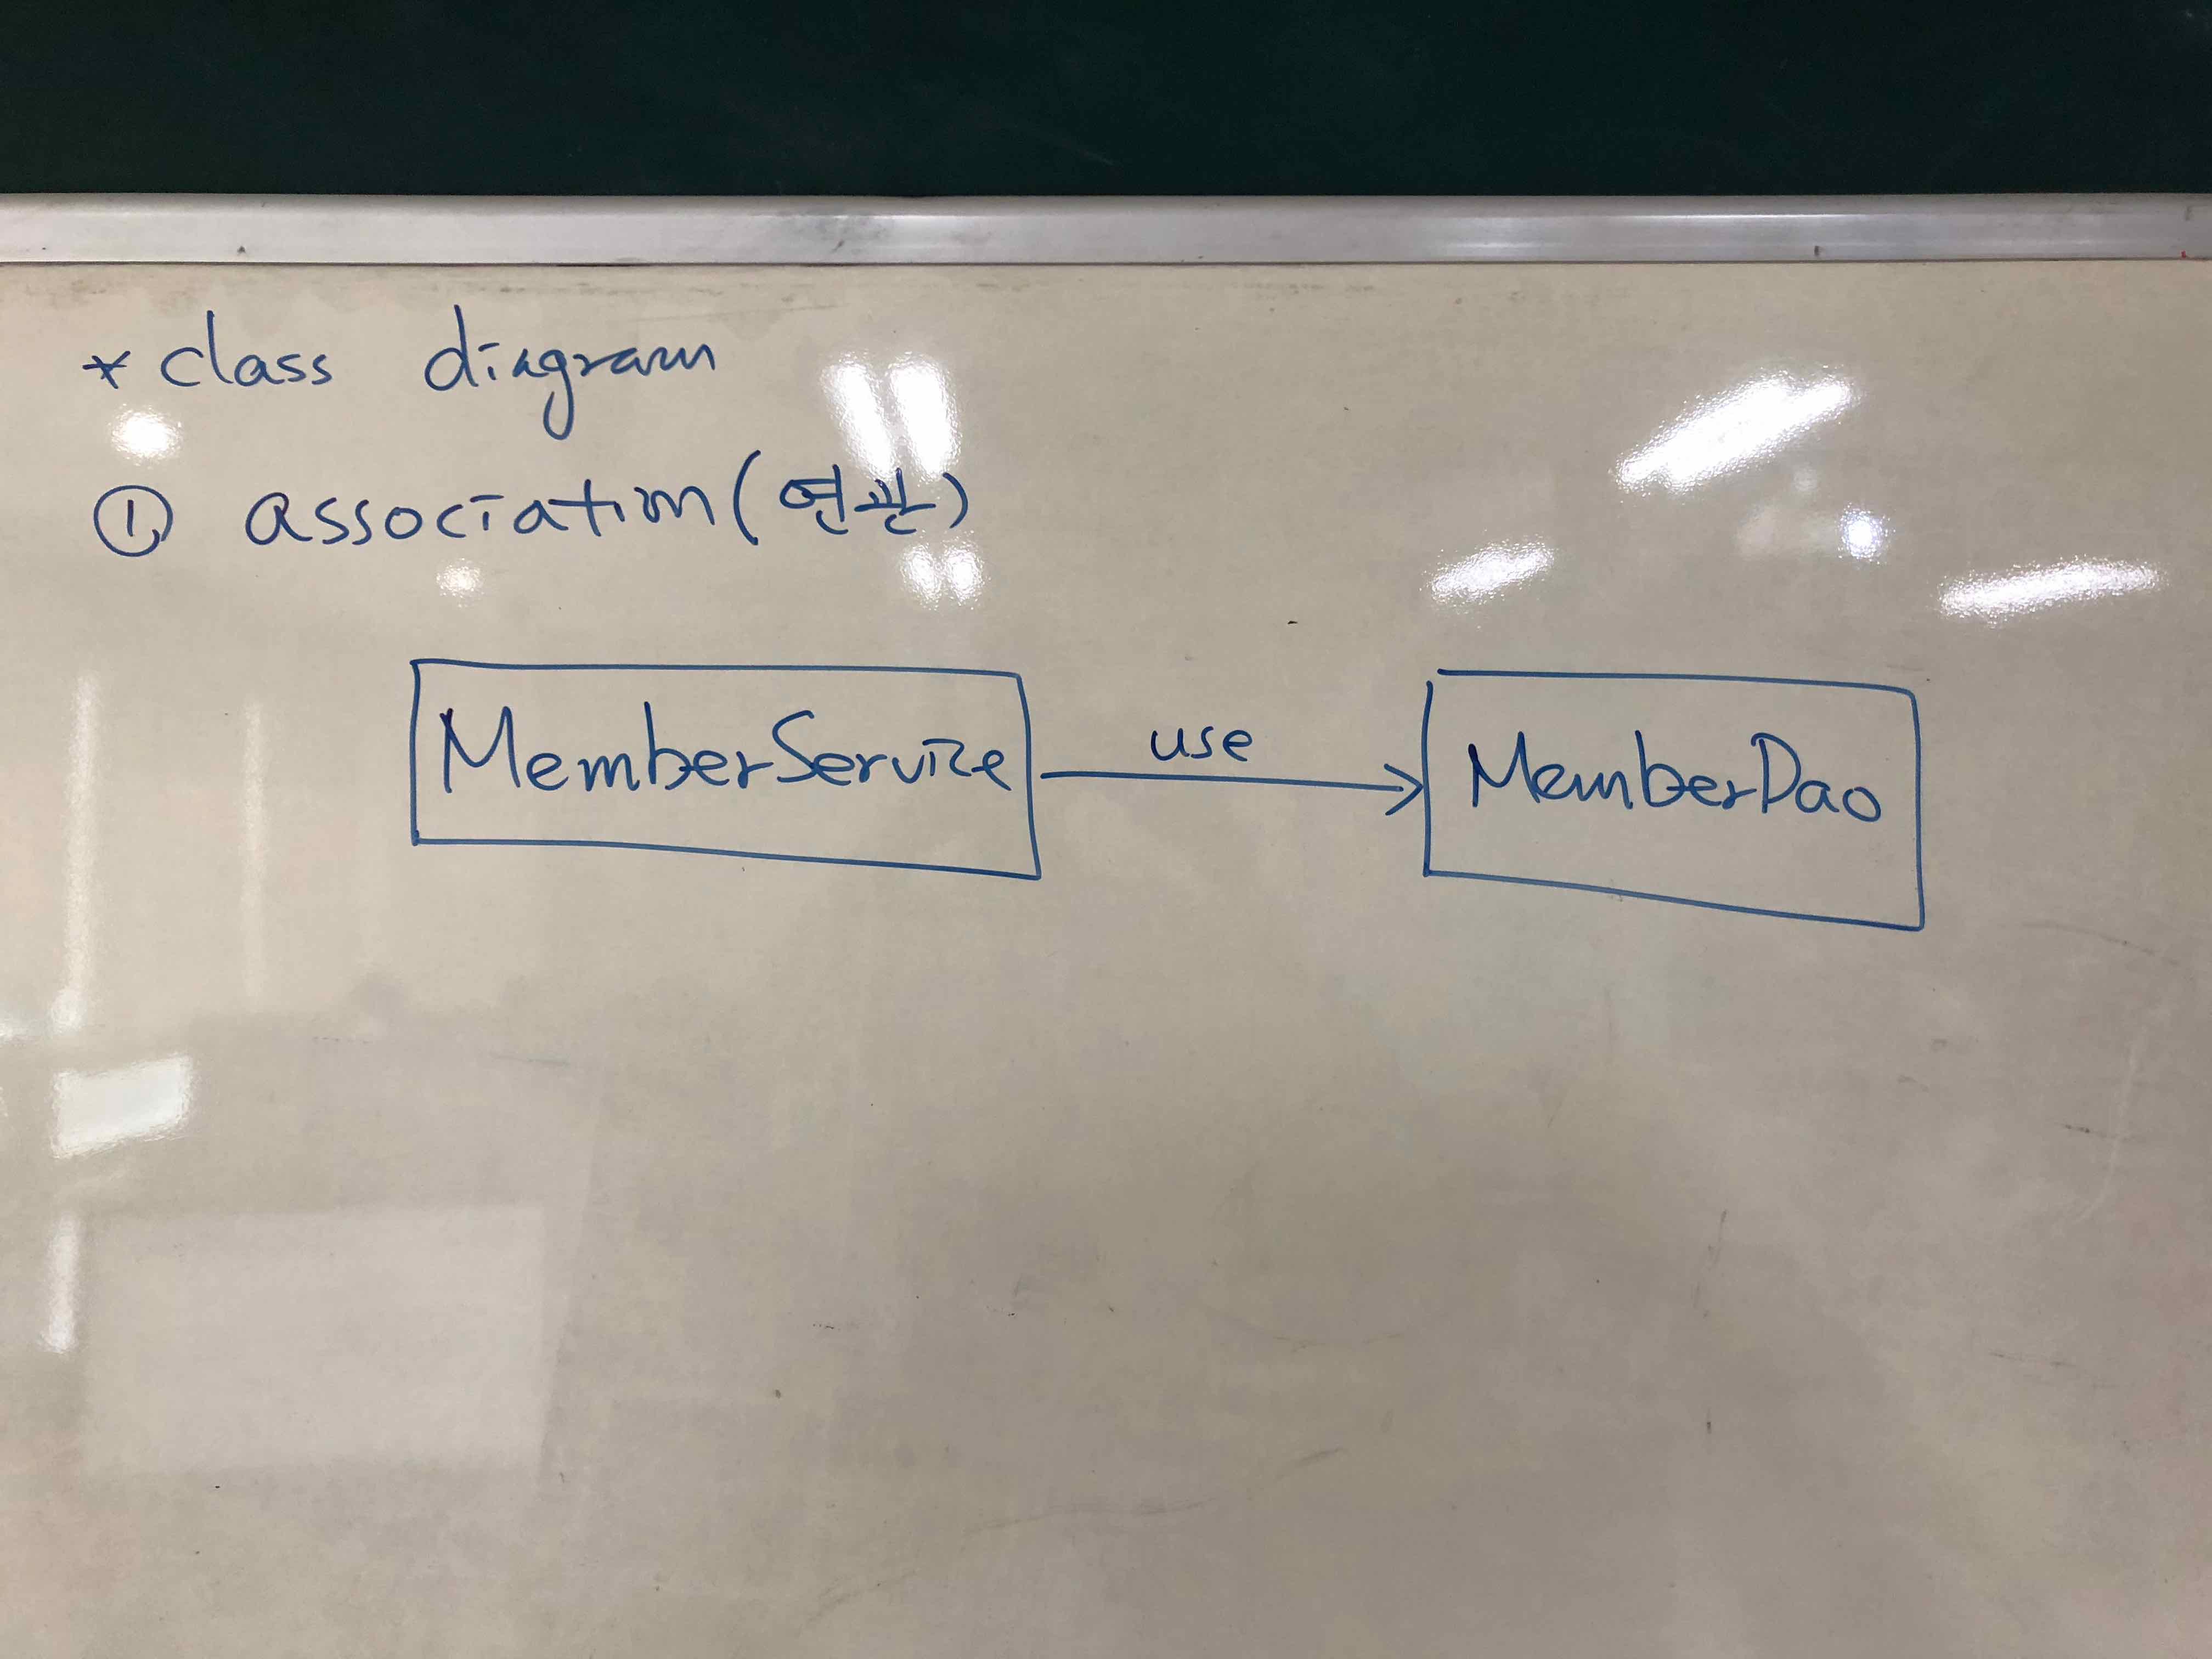 * class diagram
① association (연관)
MemberService use MemberDao